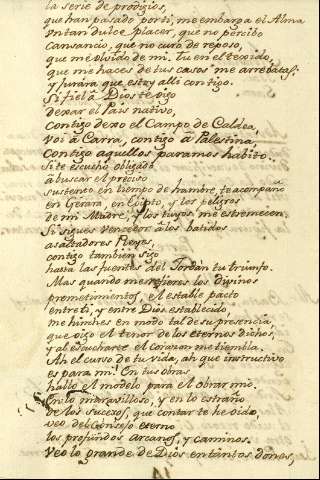 la serie de prodigios,
que han pasado por ti, me embarga el Alma
un tan dulce placer, que no percibo
cansancio, que no curo de reposo,
que me olvido de mi. Tu en el texido,
que me haces de tus casos me arrebatas;
y jurara que estoy alli contigo.
Si fiel â Dios te sigo
dexar el Pais nativo,
contigo dexo el Campo de Caldea,
voi â Carra, contigo â Palestina,
contigo aquellos paramos habito.
Si te escucho obligado
â buscar el preciso
sustento en tiempo de hambre, te acompaño
en Gerara, en Egipto, y los peligros
de mi Madre, y los tuyos me estremecen.
Si sigues vencedor â los batidos
asaltadores Reyes,
contigo tambien sigo
hasta las fuentes del Jordàn tu triunfo.
Mas quando me refieres los divinos
prometimientos, el estable pacto
entre ti, y entre Dios establecido,
me hinches en modo tal de su presencia,
que oigo el tenor de los eternos dichos,
y al escucharle el corazon me tiembla.
Ah el curso de tu vida, ah que instructivo
es para mi! En tus obras
hallo el modelo para el obrar mio.
En lo maravilloso, y en lo estraño
de los sucesos, que contar te he oido,
veo del Consejo eterno
los profundos arcanos, y caminos.
Veo lo grande de Dios en tantos dones,